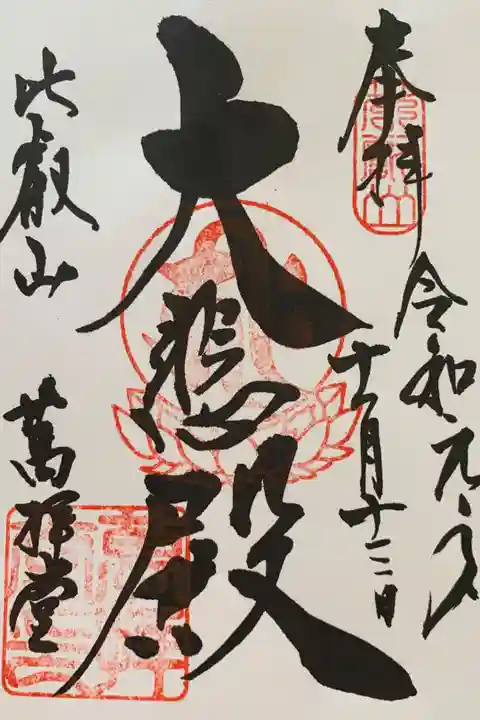 奉拝
令和元年
十一月十二日
大悲殿
比叡山
萬拝堂